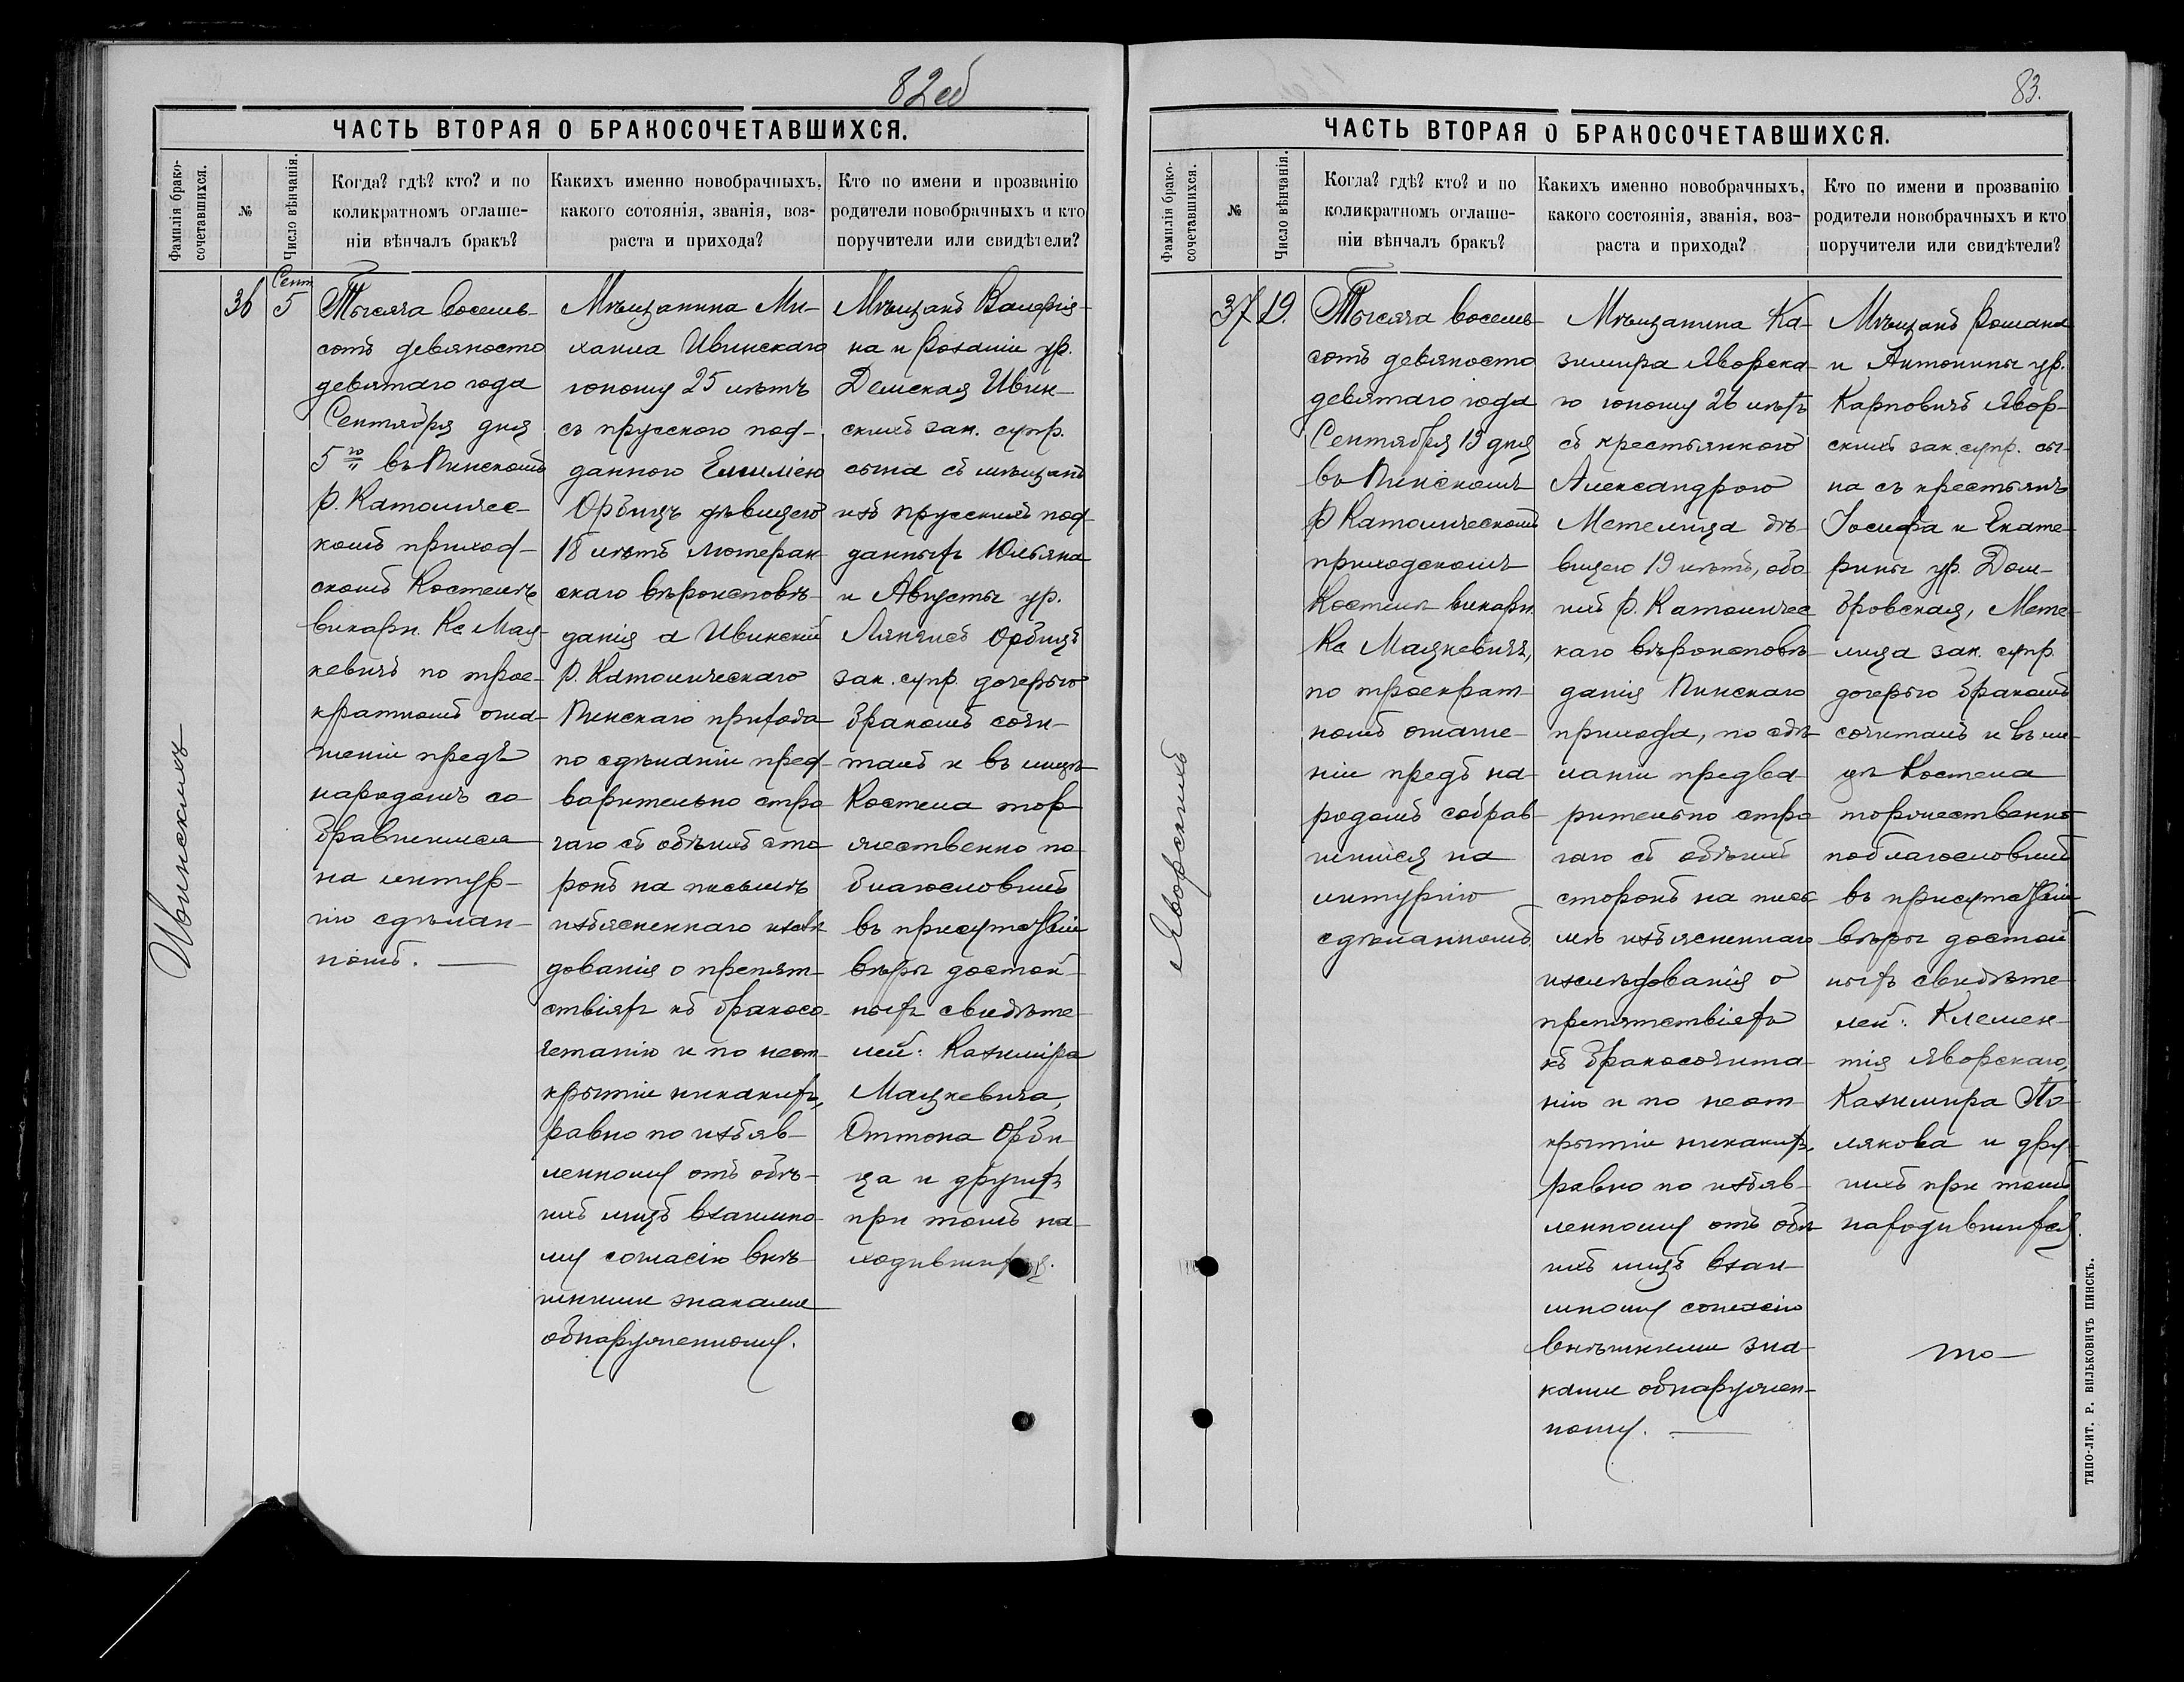 82об
ЧАСТЬ ВТОРАЯ О БРАКОСОЧЕТАВШИХСЯ.
Фамилія брако-
сочетавшихся.
№
Число вѣнчанія.
Когда? гдѣ? кто? и по
коликратномъ оглаше-
ніи вѣнчалъ бракъ?
Какихъ именно новобрачныхъ,
какого сотоянія, званія, воз-
раста и прихода?
Кто по имени и прозванію
родители новобрачныхъ и кто
поручители или свидѣтели?
Ивинскихъ
36
Сент
5
Тысяча восемь-
сотъ девяносто
девятаго года
Сентября дня
5го въ Пинскомъ
Р. Католичес-
комъ приход-
скомъ Костелѣ
викарн. Кс Мац-
кевичъ по трое-
кратномъ огла-
шеніи предъ
народомъ со
бравшимся
на литур-
гію сдѣлан-
номъ.
Мѣщанина Ми-
хаила Ивинскаго
юношу 25 лѣтъ
съ прусского под-
данного Емиліею
Орбицъ дѣвицею
18 лѣтъ лютеран-
скаго вѣроисповѣ-
данія а Ивинскій
Р. Католическаго
Пинскаго прихода
по сдѣланіи пред-
варительно стро
гаго съ обѣихъ сто
ронъ на письмѣ
изъясненнаго изслѣ
дованія о препят-
ствіяхъ къ бракосо-
четанію и по неот-
крытіи никакихъ,
равно по изъяв-
ленному отъ обѣ-
ихъ лицъ взаимно-
му согласію внѣ-
шними знаками
обнаруженному.
Мѣщанъ Валерія-
на и Розаліи ур.
Демская Ивин-
скихъ зак. супр.
сына съ мѣщанъ
изъ прусскихъ под-
данныхъ Юльяна
и Августы ур.
Орбицъ
зак. супр. дочерью
бракомъ сочи-
талъ и въ лицѣ
Костела тор-
жественно по
благословилъ
въ присутствіи
вѣры достой-
ныхъ свидѣте-
лей: Казиміра
Мацкевича,
Оттона Орби-
ца и другихъ
при томъ на-
ходившихся.
83.
ЧАСТЬ ВТОРАЯ О БРАКОСОЧЕТАВШИХСЯ.
Фамилія брако-
сочетавшихся.
№
Число вѣнчанія.
Когла? гдѣ? кто? и по
коликратномъ оглаше-
ніи вѣнчалъ бракъ?
Какихъ именно новобрачныхъ,
какого состоянія, званія, воз-
раста и прихода?
Кто по имени и прозванію
родители новобрачныхъ и кто
поручители или свидѣтели?
Яворскихъ
37
19.
Тысяча восемь-
сотъ девяносто
девятаго года
Сентября 19 дня
въ Пинскомъ
Р Католическомъ
приходскомъ
Костелѣ викарн.
Кс Мацкевичъ,
по троекрат-
номъ оглаше-
ніи предъ на-
родомъ собрав-
шимся на
литургію
сдѣланномъ
Мѣщанина Ка-
зимира Яворска-
го юношу 26 лѣтъ
съ крестьянкою
Александрою
Метелица дѣ-
вицею 19 лѣтъ, обо
ихъ Р. Католичес
каго вѣроисповѣ-
данія Пинскаго
прихода, по сдѣ-
ланіи предва-
рительно стро
гаго съ обѣихъ
сторонъ на пись
мѣ изъясненнаго
изслѣдованія о
препятствіяхъ
къ бракосочета-
нію и по неот-
крытіи никакихъ,
равно по изъяв-
ленному отъ обѣ
ихъ лицъ взаи-
мному согласію
внѣшними зна-
ками обнаружен-
ному.
Мѣщанъ Романа
и Антонины ур.
Карповичъ Явор-
скихъ зак. супр. сы-
на съ крестьянъ
Іосифа и Екате-
рины ур. Дом-
бровская, Мете-
лица зак. супр.
дочерью бракомъ
сочиталъ и въ ли-
цѣ Костела
торжественно
поблагословилъ
въ присутствіи
вѣры достой
ныхъ свидѣте-
лей: Клемен-
тія Яворскаго,
Казимира По-
лякова и дру-
гихъ при томъ
находившихся.
ТИПО-ЛИТ. Р. ВИЛЬКОВИЧЪ ПИНСКЪ.